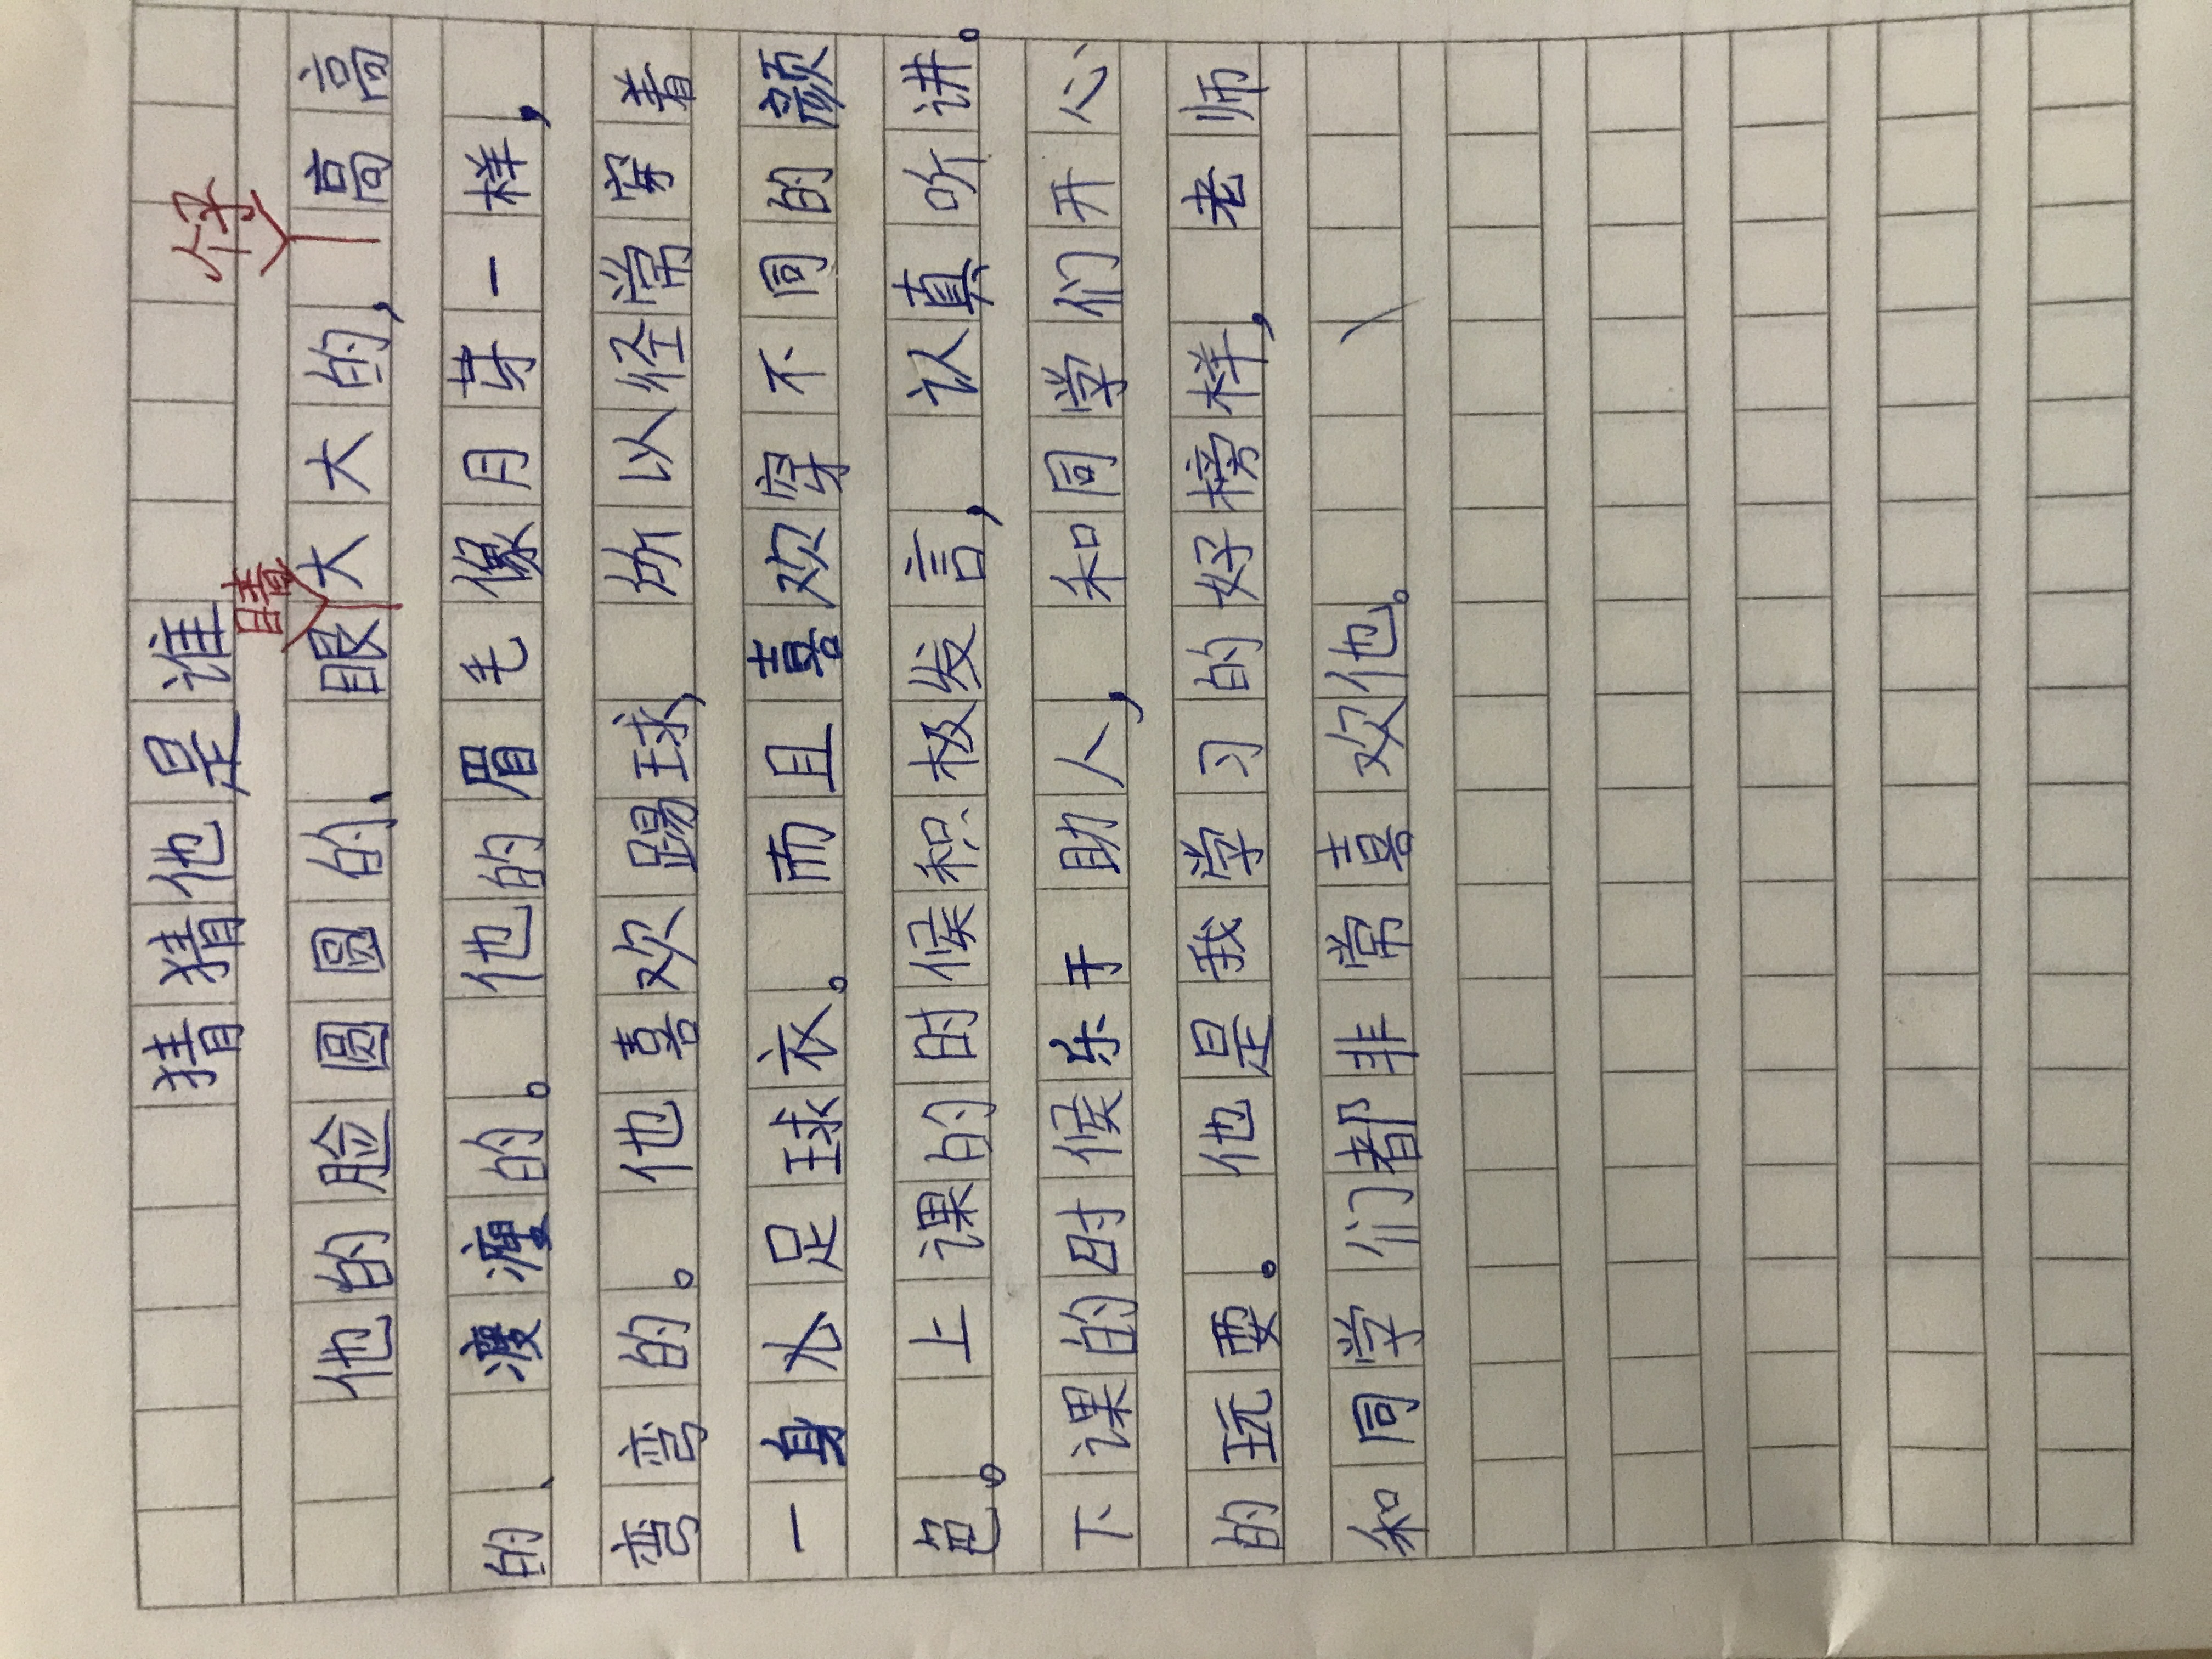 猜猜他是谁
他的脸圆圆的、眼睛大大的，个子高高
的、瘦瘦的。他的眉毛像月牙一样，
弯弯的。他喜欢踢球，所以经常穿着
一身儿足球衣。而且喜欢穿不同的颜
色。上课的时候积极发言，认真听讲。
下课的时候乐于助人，和同学们开心
的玩耍。他是我学习的好榜样，老师
和同学们都非常喜欢他。